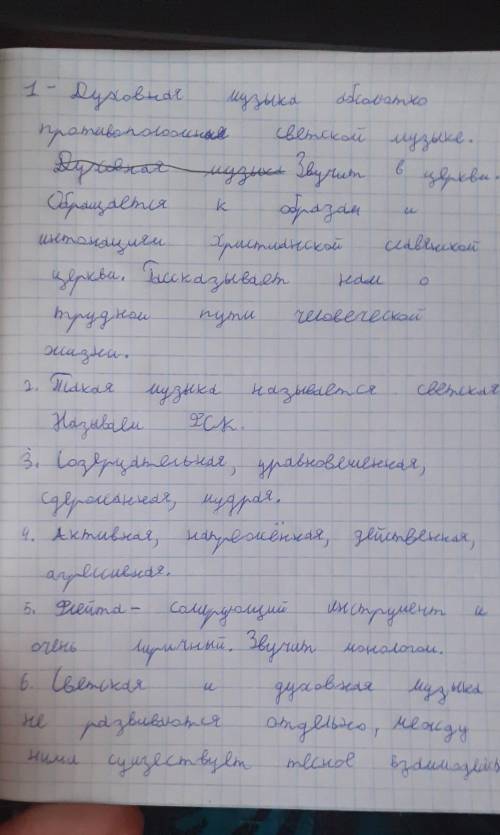 1 - Духовная музыка абсолютно
противоположна светской музыке.
Духовная музыка Звучит в церкви.
Обращается к образам и
интонациям христианской славянской
церкви. Рассказывает нам о
трудном пути человеческой
жизни.
2. Такая музыка называется светская
Называем ФСК.
3. Созерцательная, уравновешенная,
сдержанная, мудрая.
4. Активная, напряжённая, действенная,
агрессивная.
5. Флейта - солирующий инструмент и
очень лиричный. Звучит монологом.
6. Светская и духовная музыка
не развиваются отдельно, между
ними существует тесное взаимодейс